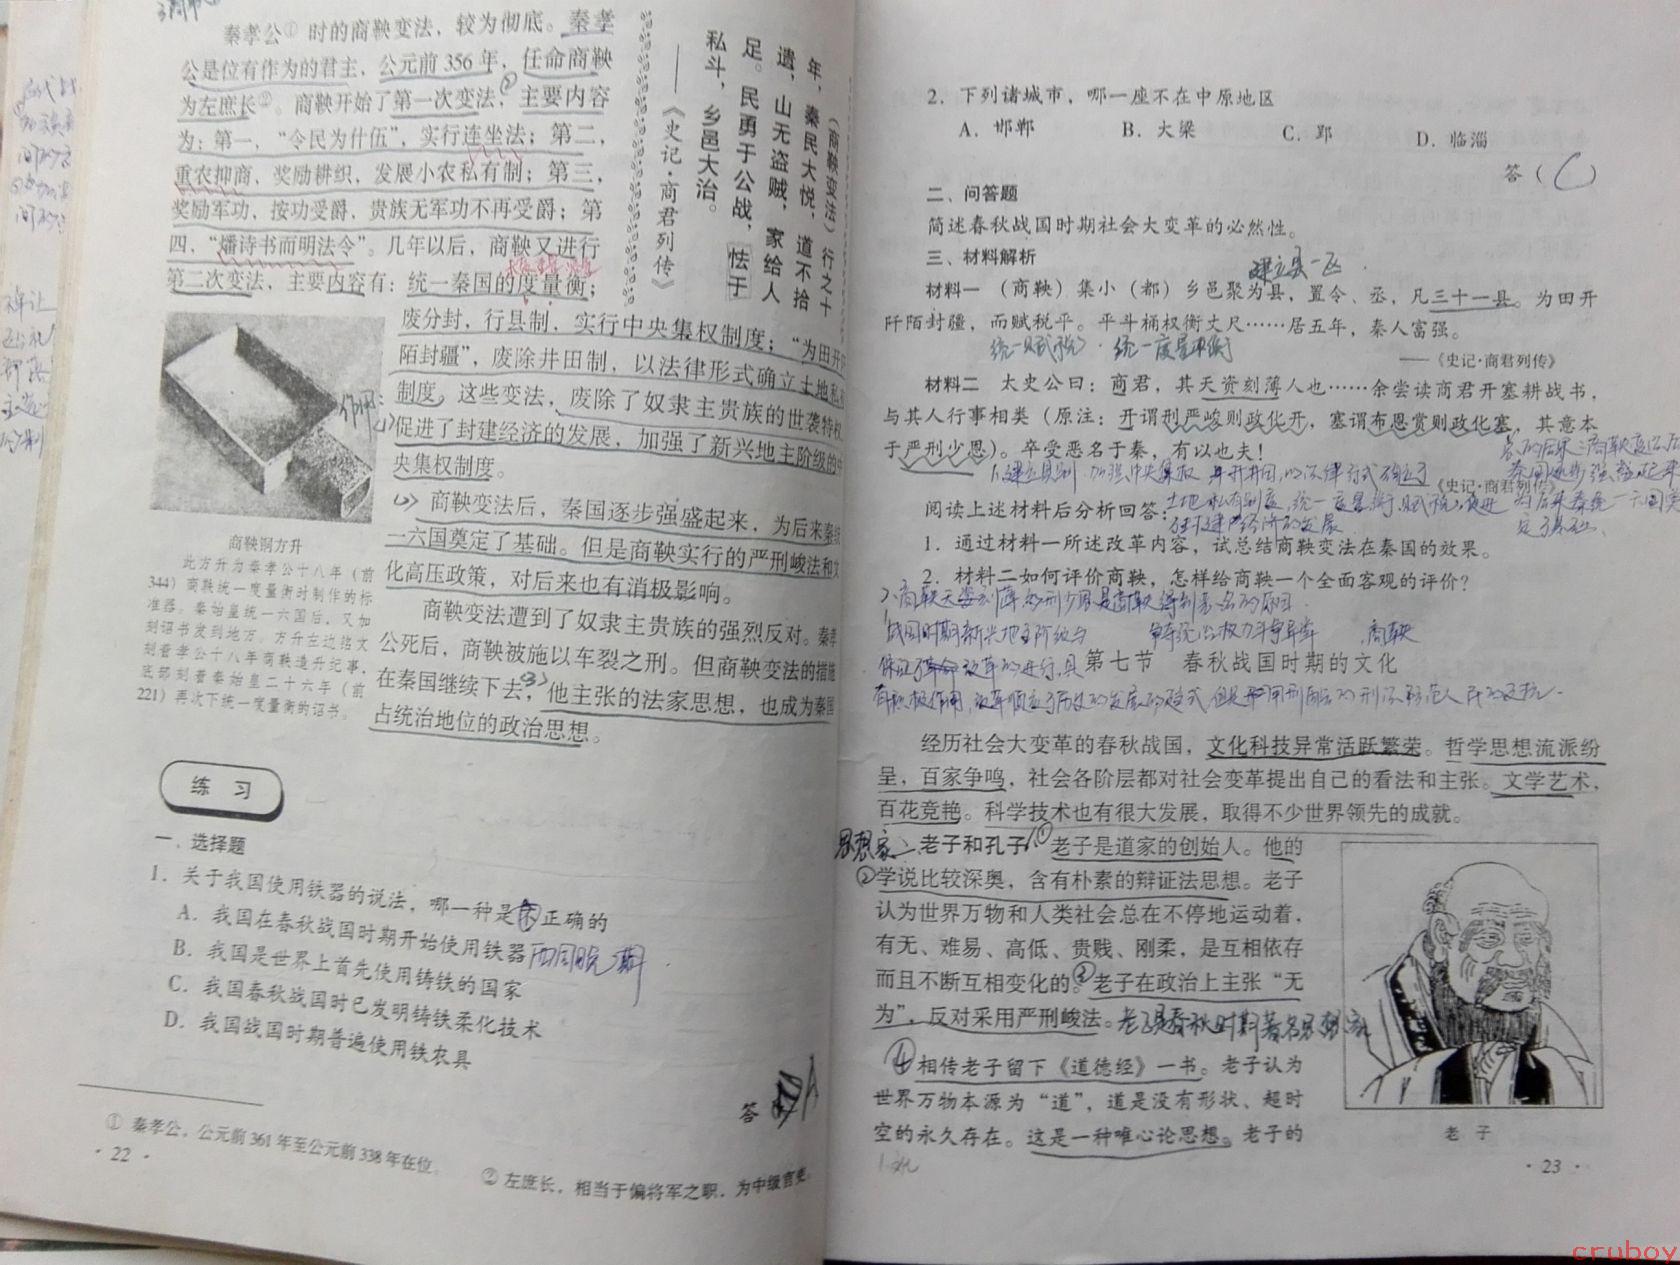 秦孝公①时的商鞅变法，较为彻底。秦孝
公是位有作为的君主，公元前356年，任命商鞅
为左庶长②。商鞅开始了第一次变法，主要内容
为：第一，“令民为什伍”，实行连坐法；第二，
重农抑商，奖励耕织，发展小农私有制；第三，
奖励军功，按功受爵，贵族无军功不再受爵；第
四，“燔诗书而明法令”。几年以后，商鞅又进行
第二次变法，主要内容有：统一秦国的度量衡；
废分封，行县制，实行中央集权制度；“为田开阡
陌封疆”，废除井田制，以法律形式确立土地私有
制度。这些变法，废除了奴隶主贵族的世袭特权，
促进了封建经济的发展，加强了新兴地主阶级的中
央集权制度。
商鞅变法后，秦国逐步强盛起来，为后来秦统
一六国奠定了基础。但是商鞅实行的严刑峻法和文
化高压政策，对后来也有消极影响。
商鞅变法遭到了奴隶主贵族的强烈反对。秦孝
公死后，商鞅被施以车裂之刑。但商鞅变法的措施
在秦国继续下去，他主张的法家思想，也成为秦国
占统治地位的政治思想。
（商鞅变法）行之十
年，秦民大悦，道不拾
遗，山无盗贼，家给人
足。民勇于公战，怯于
私斗，乡邑大治。
——《史记·商君列传》
作用：
商鞅铜方升
此方升为秦孝公十八年（前
344）商鞅统一度量衡时制作的标
准器。秦始皇统一六国后，又加
刻诏书发到地方。方升左边铭文
刻着孝公十八年商鞅造升纪事，
底部刻着秦始皇二十六年（前
221）再次下统一度量衡的诏书。
练 习
一、选择题
1．关于我国使用铁器的说法，哪一种是不正确的
A．我国在春秋战国时期开始使用铁器
西周晚期
B．我国是世界上首先使用铸铁的国家
C．我国春秋战国时已发明铸铁柔化技术
D．我国战国时期普遍使用铁农具
答 A
① 秦孝公，公元前361年至公元前338年在位。
② 左庶长，相当于偏将军之职，为中级官吏。
· 22 ·
2．下列诸城市，哪一座不在中原地区
A．邯郸 B．大梁 C．郢 D．临淄
答（C）
二、问答题
简述春秋战国时期社会大变革的必然性。
三、材料解析
建立县一区
材料一 （商鞅）集小（都）乡邑聚为县，置令、丞，凡三十一县。为田开
阡陌封疆，而赋税平。平斗桶权衡丈尺……居五年，秦人富强。
统一赋税 统一度量衡
——《史记·商君列传》
材料二 太史公曰：商君，其天资刻薄人也……余尝读商君开塞耕战书，
与其人行事相类（原注：开谓刑严峻则政化开，塞谓布恩赏则政化塞，其意本
于严刑少恩）。卒受恶名于秦，有以也夫！
——《史记·商君列传》
阅读上述材料后分析回答：
1．通过材料一所述改革内容，试总结商鞅变法在秦国的效果。
2．材料二如何评价商鞅，怎样给商鞅一个全面客观的评价？
第七节 春秋战国时期的文化
经历社会大变革的春秋战国，文化科技异常活跃繁荣。哲学思想流派纷
呈，百家争鸣，社会各阶层都对社会变革提出自己的看法和主张。文学艺术，
百花竞艳。科学技术也有很大发展，取得不少世界领先的成就。
思想家
老子和孔子 ①老子是道家的创始人。他的
②学说比较深奥，含有朴素的辩证法思想。老子
认为世界万物和人类社会总在不停地运动着，
有无、难易、高低、贵贱、刚柔，是互相依存
而且不断互相变化的。③老子在政治上主张“无
为”，反对采用严刑峻法。老子是春秋时期著名思想家
④相传老子留下《道德经》一书。老子认为
世界万物本源为“道”，道是没有形状、超时
空的永久存在。这是一种唯心论思想。老子的
老 子
· 23 ·
cruboy